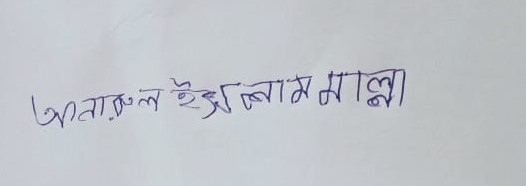 আনারুল ইসলাম মাল্লা